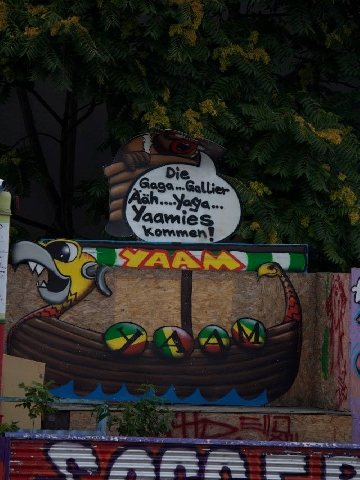 Die
Gaga...Gallier
Ääh....Yaya...
Yaamies
kommen!
YAAM
YAAM
SOCCER